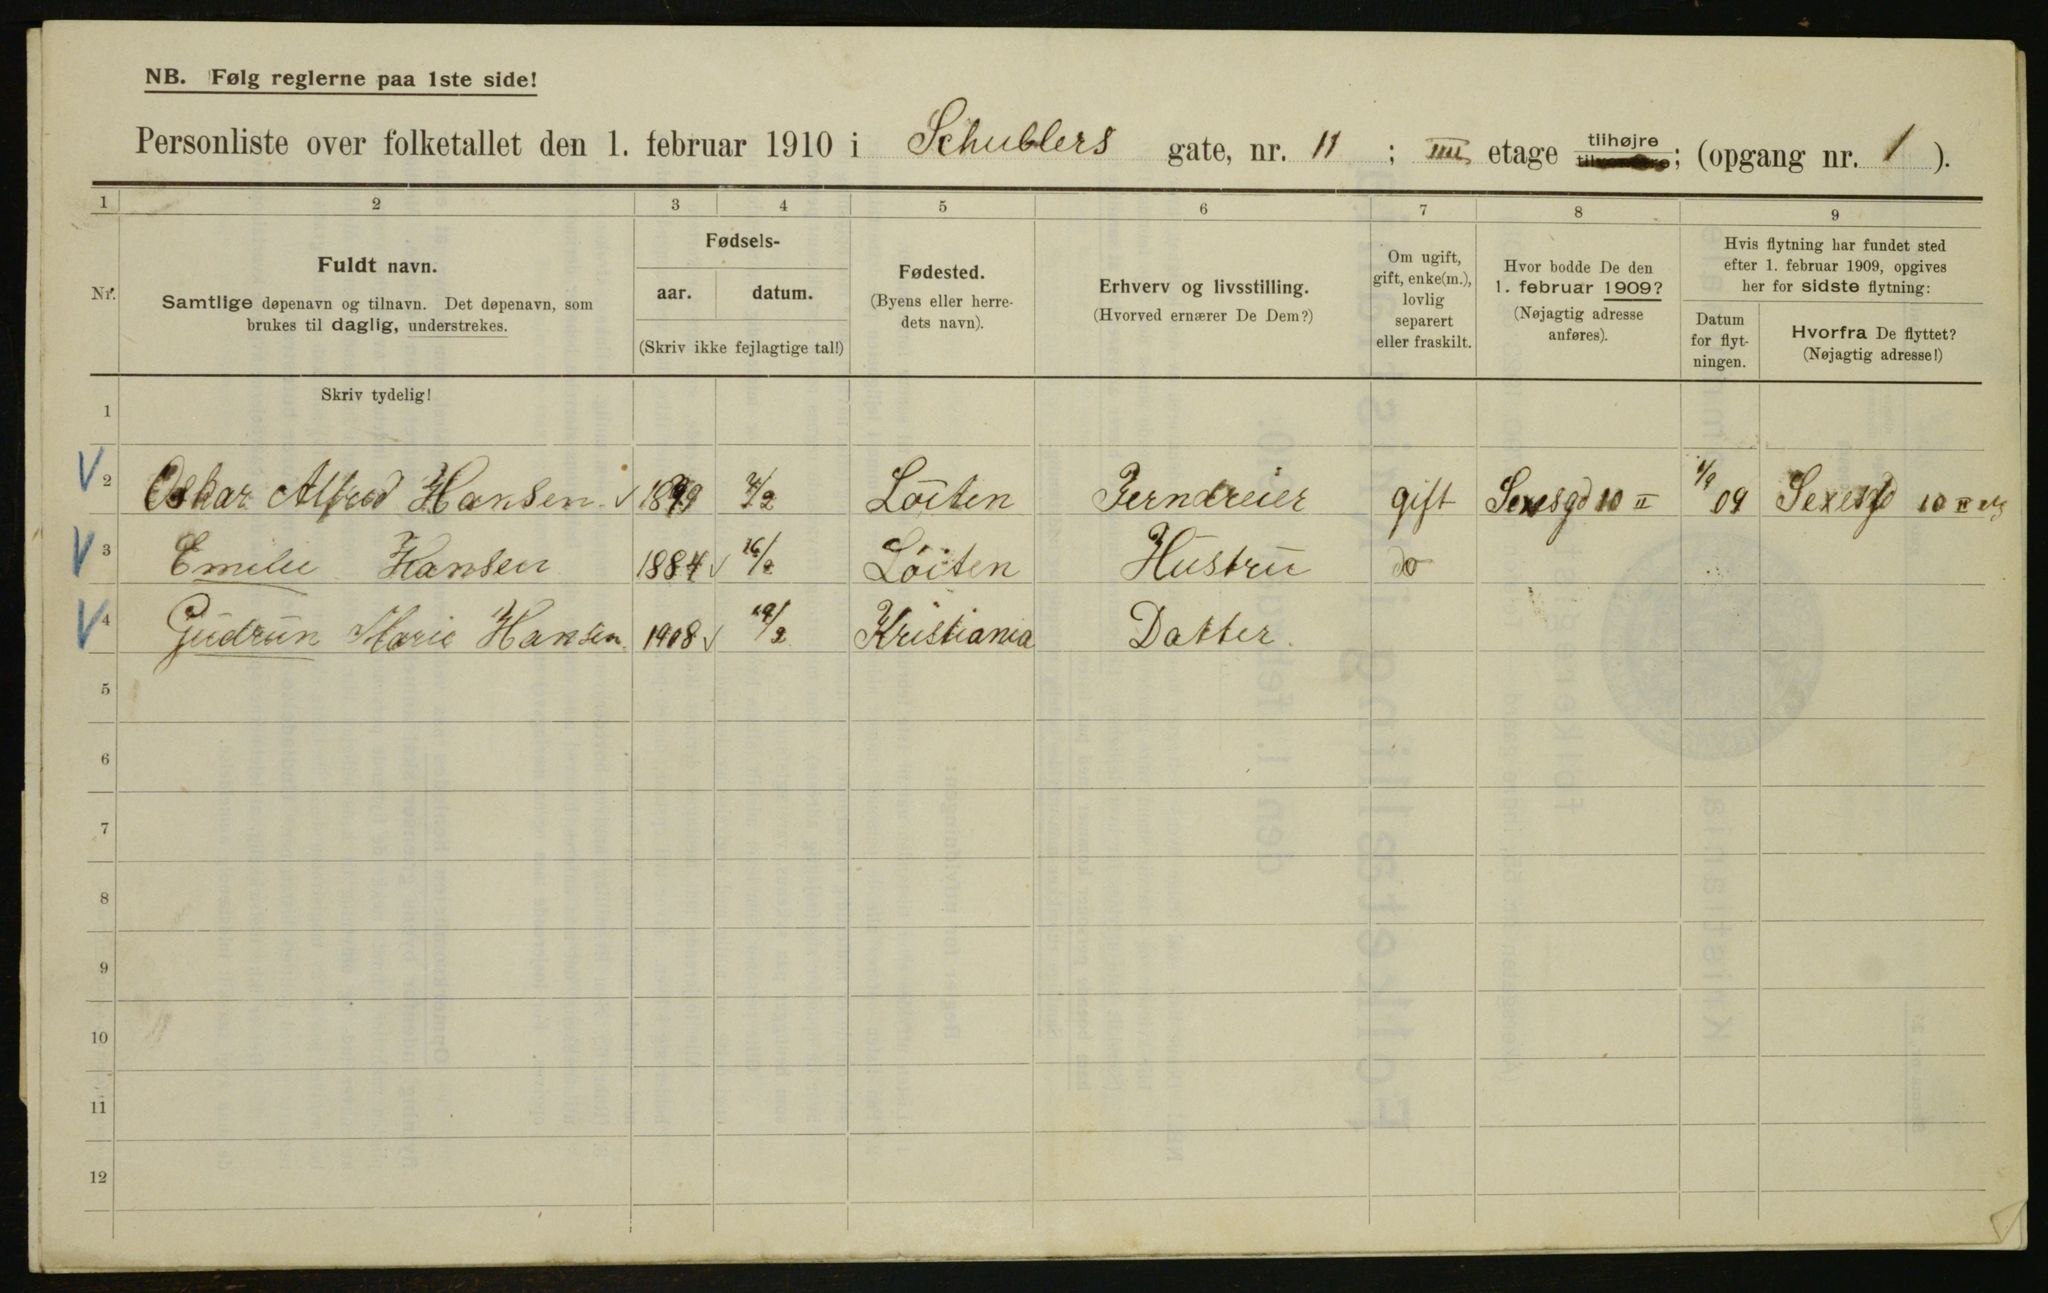 NB. Følg reglerne paa 1ste side!
Personliste over folketallet den 1. februar 1910 i Schüblers gate, nr. 11 ; IIII etage tilhøjre tilvenstre; (opgang nr. 1 ).
1 2 3 4 5 6 7 8 9
Nr.
Fuldt navn.
Samtlige døpenavn og tilnavn. Det døpenavn, som
brukes til daglig, understrekes.
Skriv tydelig!
Fødsels-
aar. datum.
(Skriv ikke fejlagtige tal!)
Fødested.
(Byens eller herre-
dets navn).
Erhverv og livsstilling.
(Hvorved ernærer De Dem?)
Om ugift,
gift, enke(m.),
lovlig
separert
eller fraskilt.
Hvor bodde De den
1. februar 1909?
(Nøjagtig adresse
anføres).
Hvis flytning har fundet sted
efter 1. februar 1909, opgives
her for sidste flytning:
Datum
for flyt-
ningen.
Hvorfra De flyttet?
(Nøjagtig adresse!)
1
2 Oskar Alfred Hansen Löiten Jerndreier gift Sexesgd 10 II 09 Sexesgd 10 II
3 Emilie Hansen 1884 16/2 Löiten Hustru do
4 Gudrun Marie Hansen 1908 19/2 Kristiania Datter
5
6
7
8
9
10
11
12